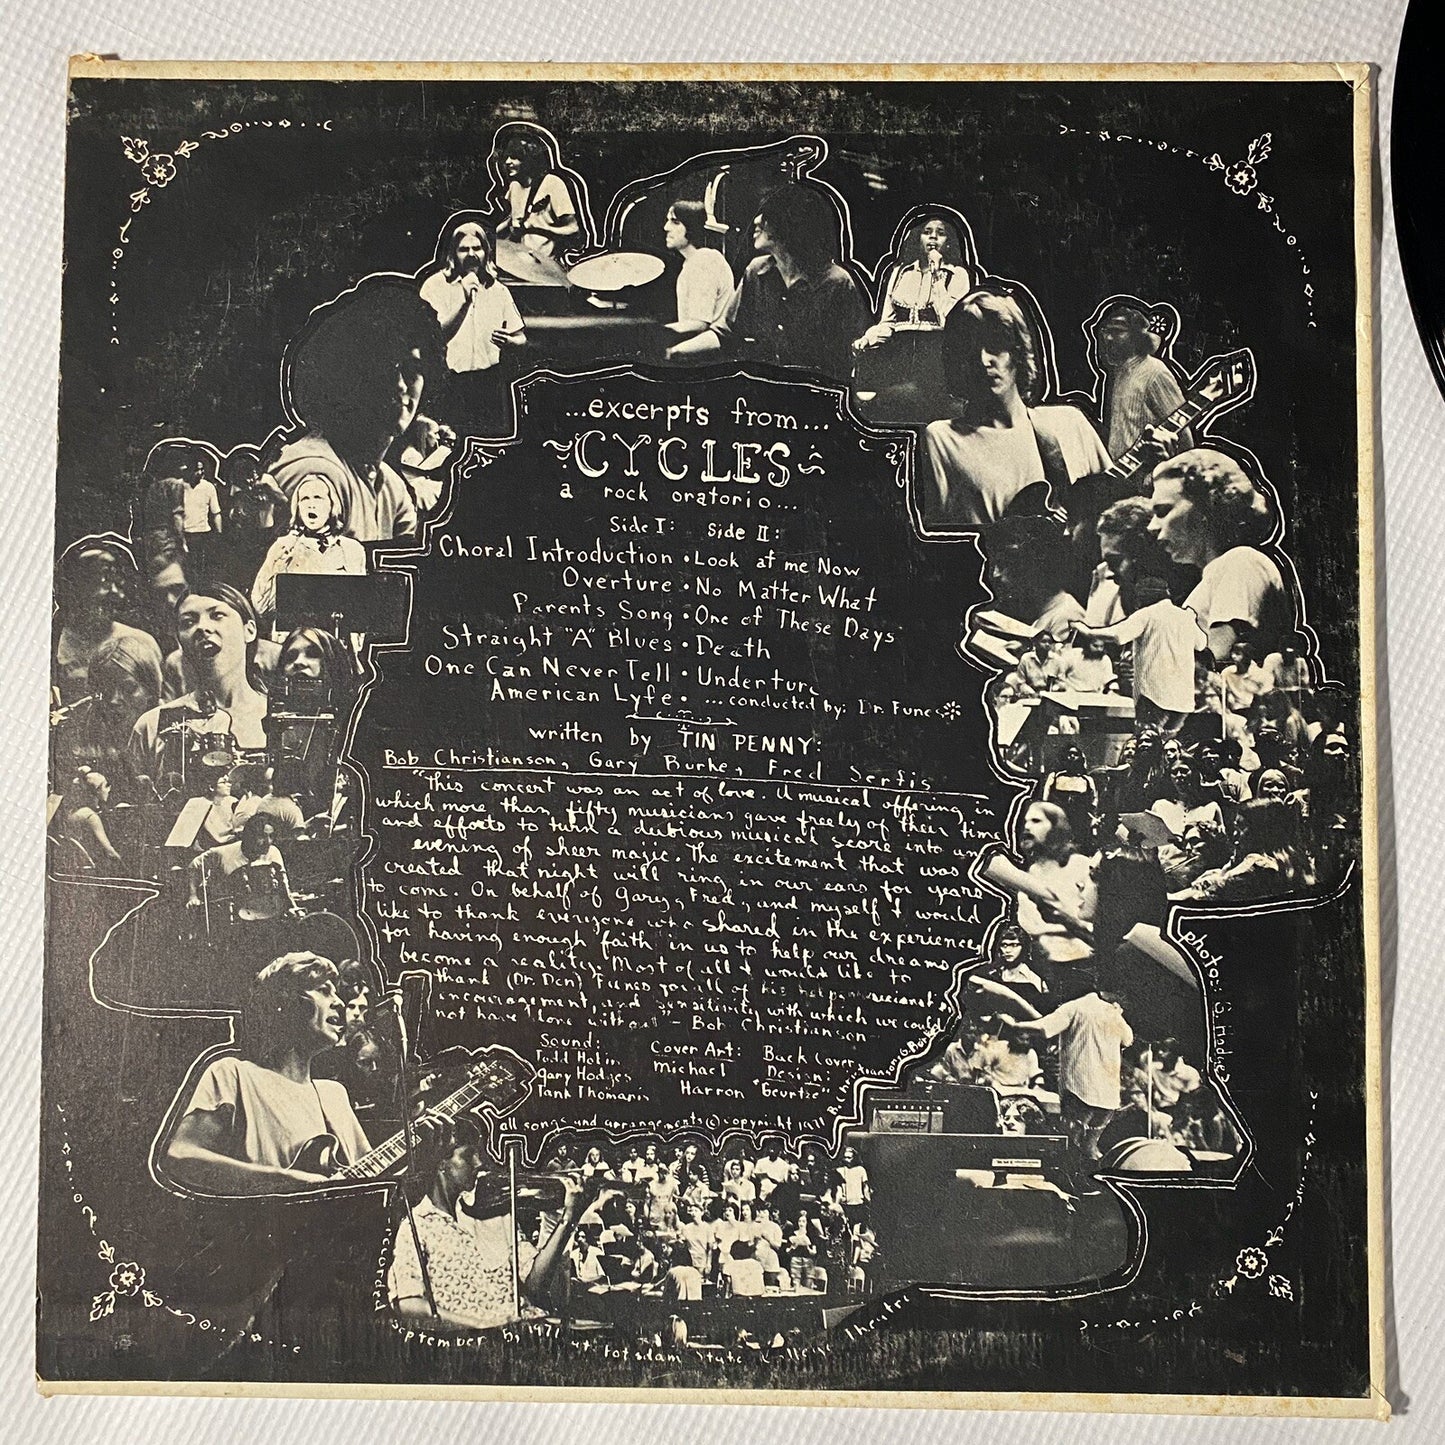 ...excerpts from...
CYCLES
a rock oratorio...
Side I: Side II:
Choral Introduction • Look at me Now
Overture • No Matter What
Parents Song • One of These Days
Straight "A" Blues • Death
One Can Never Tell • Underture
American Lyfe • ...conducted by: Dr. Funes
written by TIN PENNY:
Bob Christianson, Gary Burke, Fred
"This concert was an act of love. A musical offering in
which more than fifty musicians gave freely of their time
and efforts to turn a dubious musical score into an
evening of sheer majic. The excitement that was
created that night will ring in our ears for years
to come. On behalf of Gary, Fred, and myself I would
like to thank everyone who shared in the experience,
for having enough faith in us to help our dreams
become a reality. Most of all I would like to
thank (Dr. Don) Funes for all of his help, musicianship,
encouragement, and sensitivity with which we could
not have done without" - Bob Christianson
Sound: Cover Art: Back Cover
Todd Gary Hodges Michael Harron Design:
"Geurtze"
all songs and arrangements © copyright 1971
photos: G. Hodges
recorded September 5, 1971 at Potsdam State College Theatre